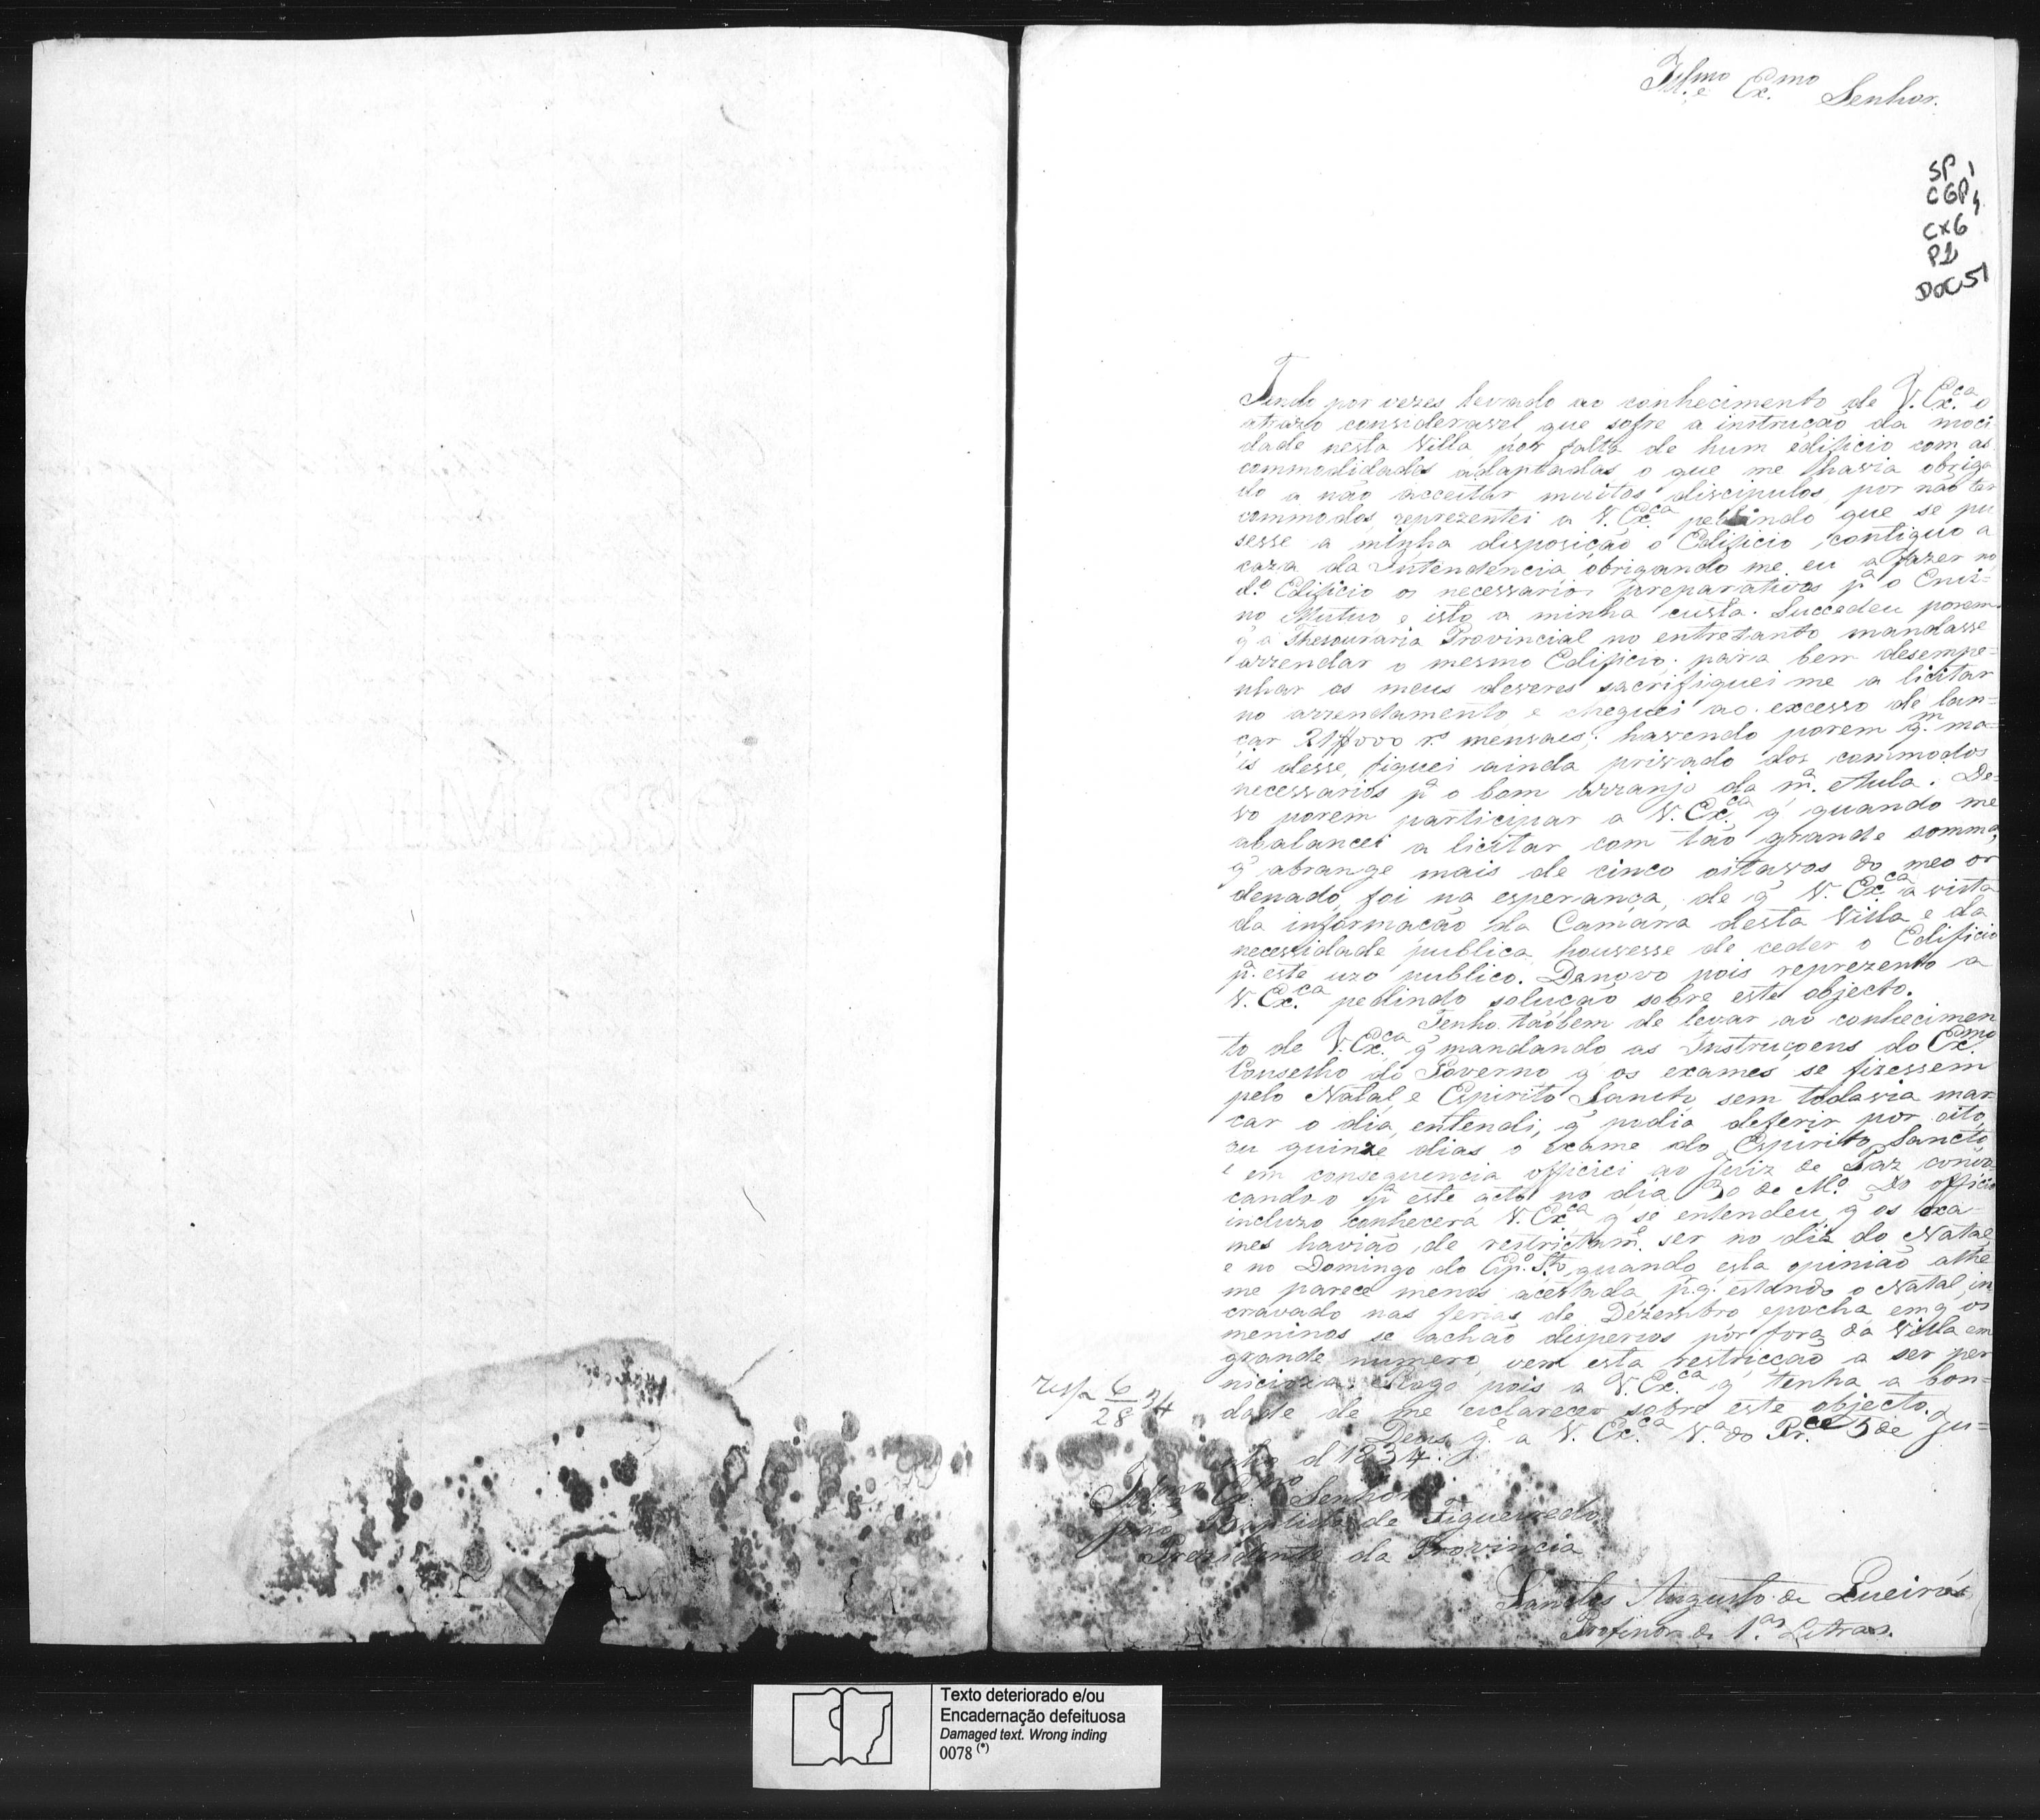 Illmo e Ex.mo Senhor.
SP,
CGP,
CX6
P1
DOC51
Tendo por vezes levado ao conhecimento de V. Ex.ca o
atrazo consideravel que sofre a instrução da moci
dade nesta Villa por falta de hum edificio com as
commodidades adaptadas o que me havia obriga
do a não acceitar muitos discipulos, por não ter
commodos, reprezentei a V. Ex.ca pedindo que se pu
sesse a minha disposição o Edificio contiguo a
caza da Intendencia obrigando me eu a fazer no
d.o Edificio os necessarios preparativos p.a o Ensi=
no Mutuo e isto a minha custa. Succedeu porem
q̃ a Thesouraria Provincial no entretanto mandasse
arrendar o mesmo Edificio; para bem desempe=
nhar os meus deveres sacrifiquei me a licitar
no arrendamento, e cheguei ao excesso de lan=
çar 21$000 r.s mensaes; havendo porem q.m ma=
is desse, fiquei ainda privado dos commodos
necessarios p.a o bom arranjo da m.a Aula. De=
vo porem participar a V. Ex.ca q̃ quando me
abalancei a licitar com tão grande somma,
q̃ abrange mais de cinco oitavos do meo or
denado, foi na esperança, de q̃ V. Ex.ca á vista
da informação da Camara desta Villa e da
necessidade publica houvesse de ceder o Edificio
p.a este uzo publico. Denovo pois reprezento a
V. Ex.ca pedindo solução sobre este objecto.
Tenho tãobem de levar ao conhecimen
to de V. Ex.ca q̃ mandando as Instruçoens do Ex.mo
Conselho do Governo q̃ os exames se fizessem
pelo Natal e Espirito Sancto sem todavia mar=
car o dia, entendi, q̃ podia deferir por oito,
ou quinze dias o exame do Espirito Sancto,
e em consequencia officiei ao Juiz de Paz convo=
cando o p.a este acto no dia 30 de M.o Do officio
incluzo conhecerá V. Ex.ca q̃ se entendeu q̃ os exa=
mes havião de restrictam.e ser no dia do Natal,
e no Domingo do Esp.o St.o, quando esta opinião athe
me parece menos acertada, p.q̃ estando o Natal in
cravado nas ferias de Dezembro epocha em q̃ os
meninos se achão dispersos por fora da Villa em
grande numero, vem esta restricção a ser per
nicioza. Rogo pois a V. Ex.ca q̃ tenha a bon=
dade de me esclarecer sobre este objecto.
resp.a 6/28 34
Deos g.e a V. Ex.ca V.a do Pr.ce 5 de Ju=
nho d 1834.
Illmo e Ex.mo Senhor
João Baptista de Figueiredo
Prezidente da Provincia
Santos Augusto de Queirós
Professor de 1.as Letras.
Texto deteriorado e/ou
Encadernação defeituosa
Damaged text. Wrong inding
0078 (*)